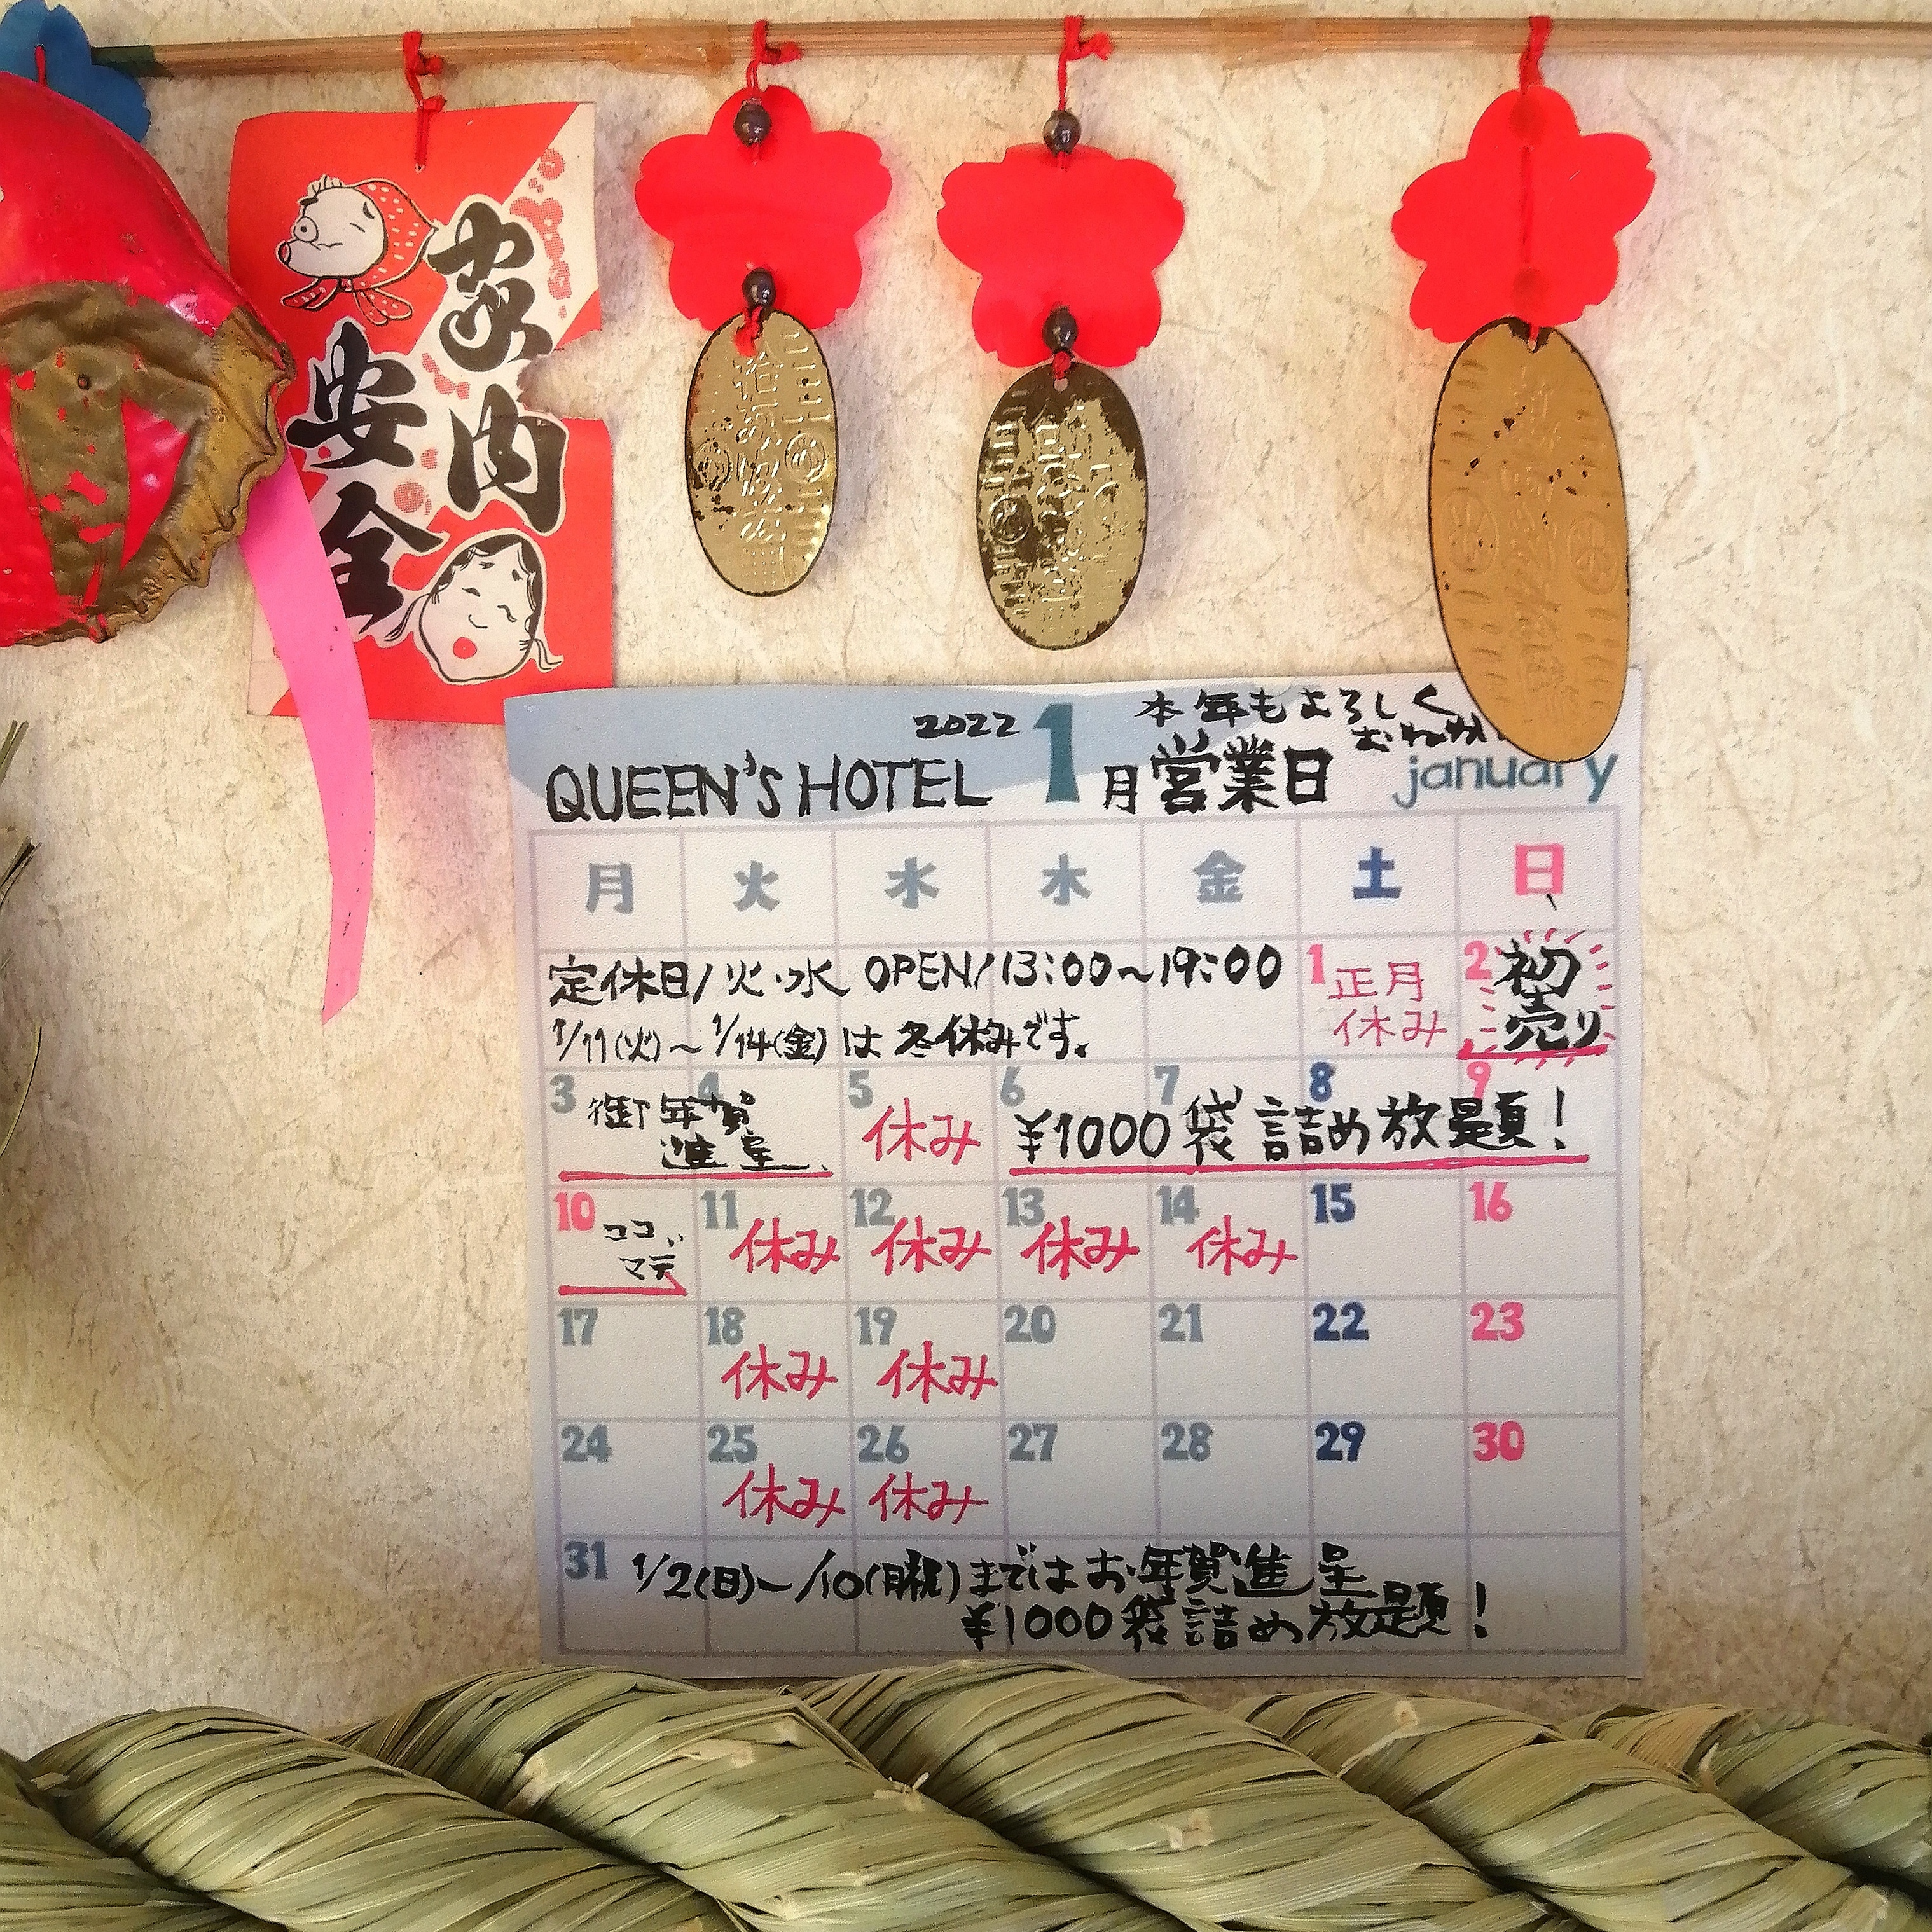 家内
安全
2022
本年もよろしく
おねがい
QUEEN'S HOTEL 1月営業日
january
月 火 水 木 金 土 日
定休日/火・水 OPEN/13:00~19:00
1/11(火)~1/14(金)は冬休みです。
1 正月休み
2 初売り
3 4 御年賀進呈
5 休み
6 7 8 9 ¥1000袋詰め放題!
10 ココマデ
11 休み
12 休み
13 休み
14 休み
15
16
17
18 休み
19 休み
20
21
22
23
24
25 休み
26 休み
27
28
29
30
31
1/2(日)~/10(月祝)まではお年賀進呈
¥1000袋詰め放題!